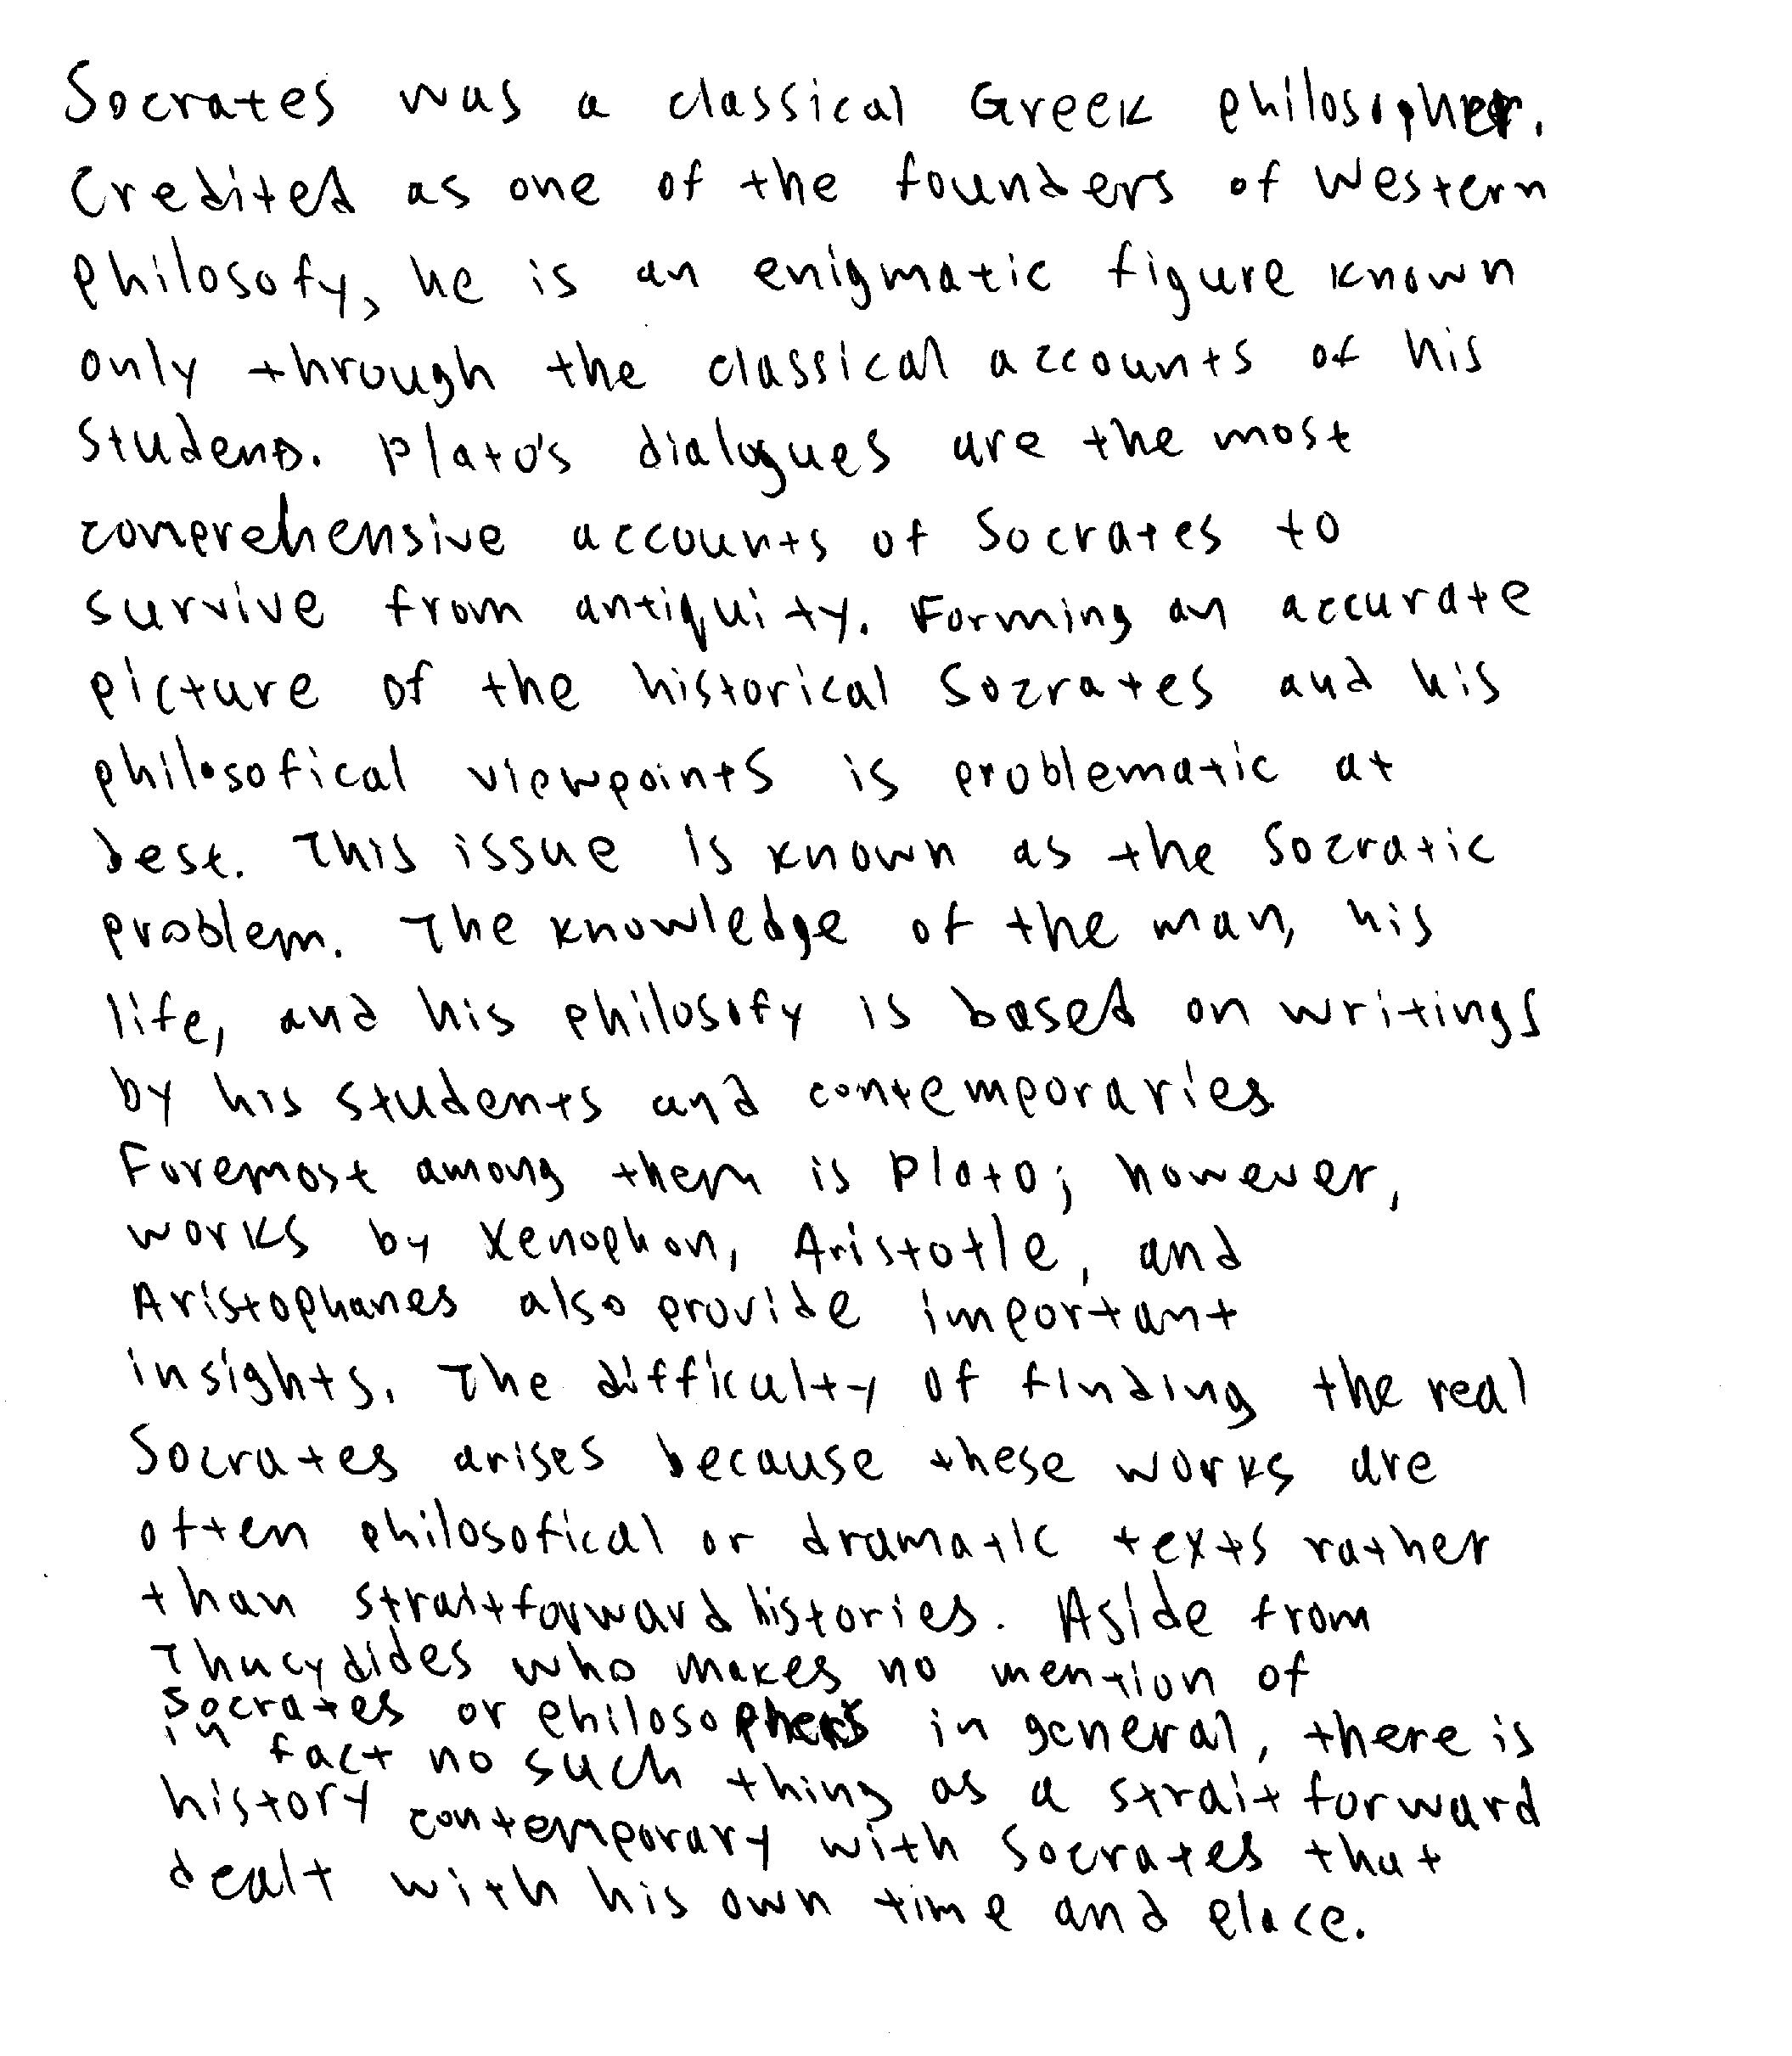 Socrates was a classical Greek philosopher.
Credited as one of the founders of Western
philosofy, he is an enigmatic figure known
only through the classical accounts of his
students. Plato's dialogues are the most
comprehensive accounts of Socrates to
survive from antiquity. Forming an accurate
picture of the historical Socrates and his
philosofical viewpoints is problematic at
best. This issue is known as the Socratic
problem. The knowledge of the man, his
life, and his philosofy is based on writings
by his students and contemporaries.
Foremost among them is Plato; however,
works by Xenophon, Aristotle, and
Aristophanes also provide important
insights. The difficulty of finding the real
Socrates arises because these works are
often philosofical or dramatic texts rather
than straitforward histories. Aside from
Thucydides who makes no mention of
Socrates or philosophers in general, there is
in fact no such thing as a strait forward
history contemporary with Socrates that
dealt with his own time and place.